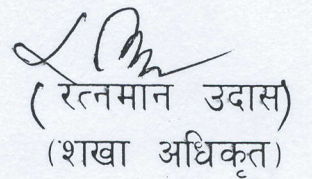 ( रत्नमान उदास)
(शखा अधिकृत)